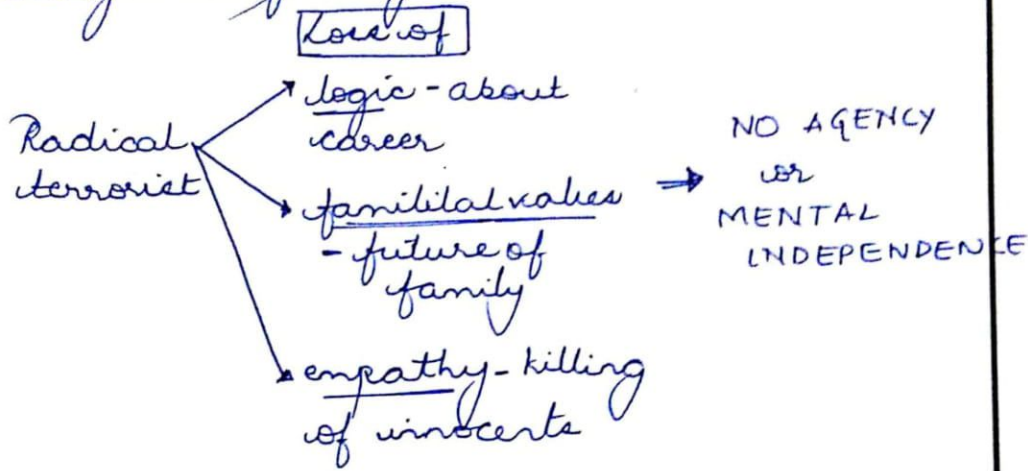 Loss of
Radical
terrorist
logic - about
career
familital values
- future of
family
empathy - killing
of innocents
NO AGENCY
or
MENTAL
INDEPENDENCE